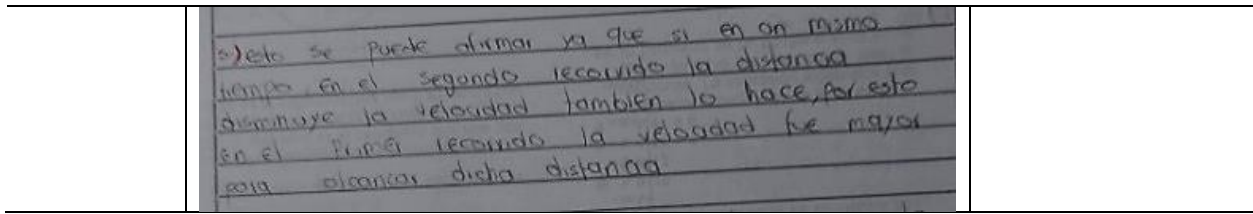 5) esto se puede afirmar ya que si en on mismo
tiempo en el segondo recorrido la distancia
disminuye la velocidad tambien lo hace, por esto
en el primer recorrido la velocidad fue mayor
para alcanzar dicha distancia